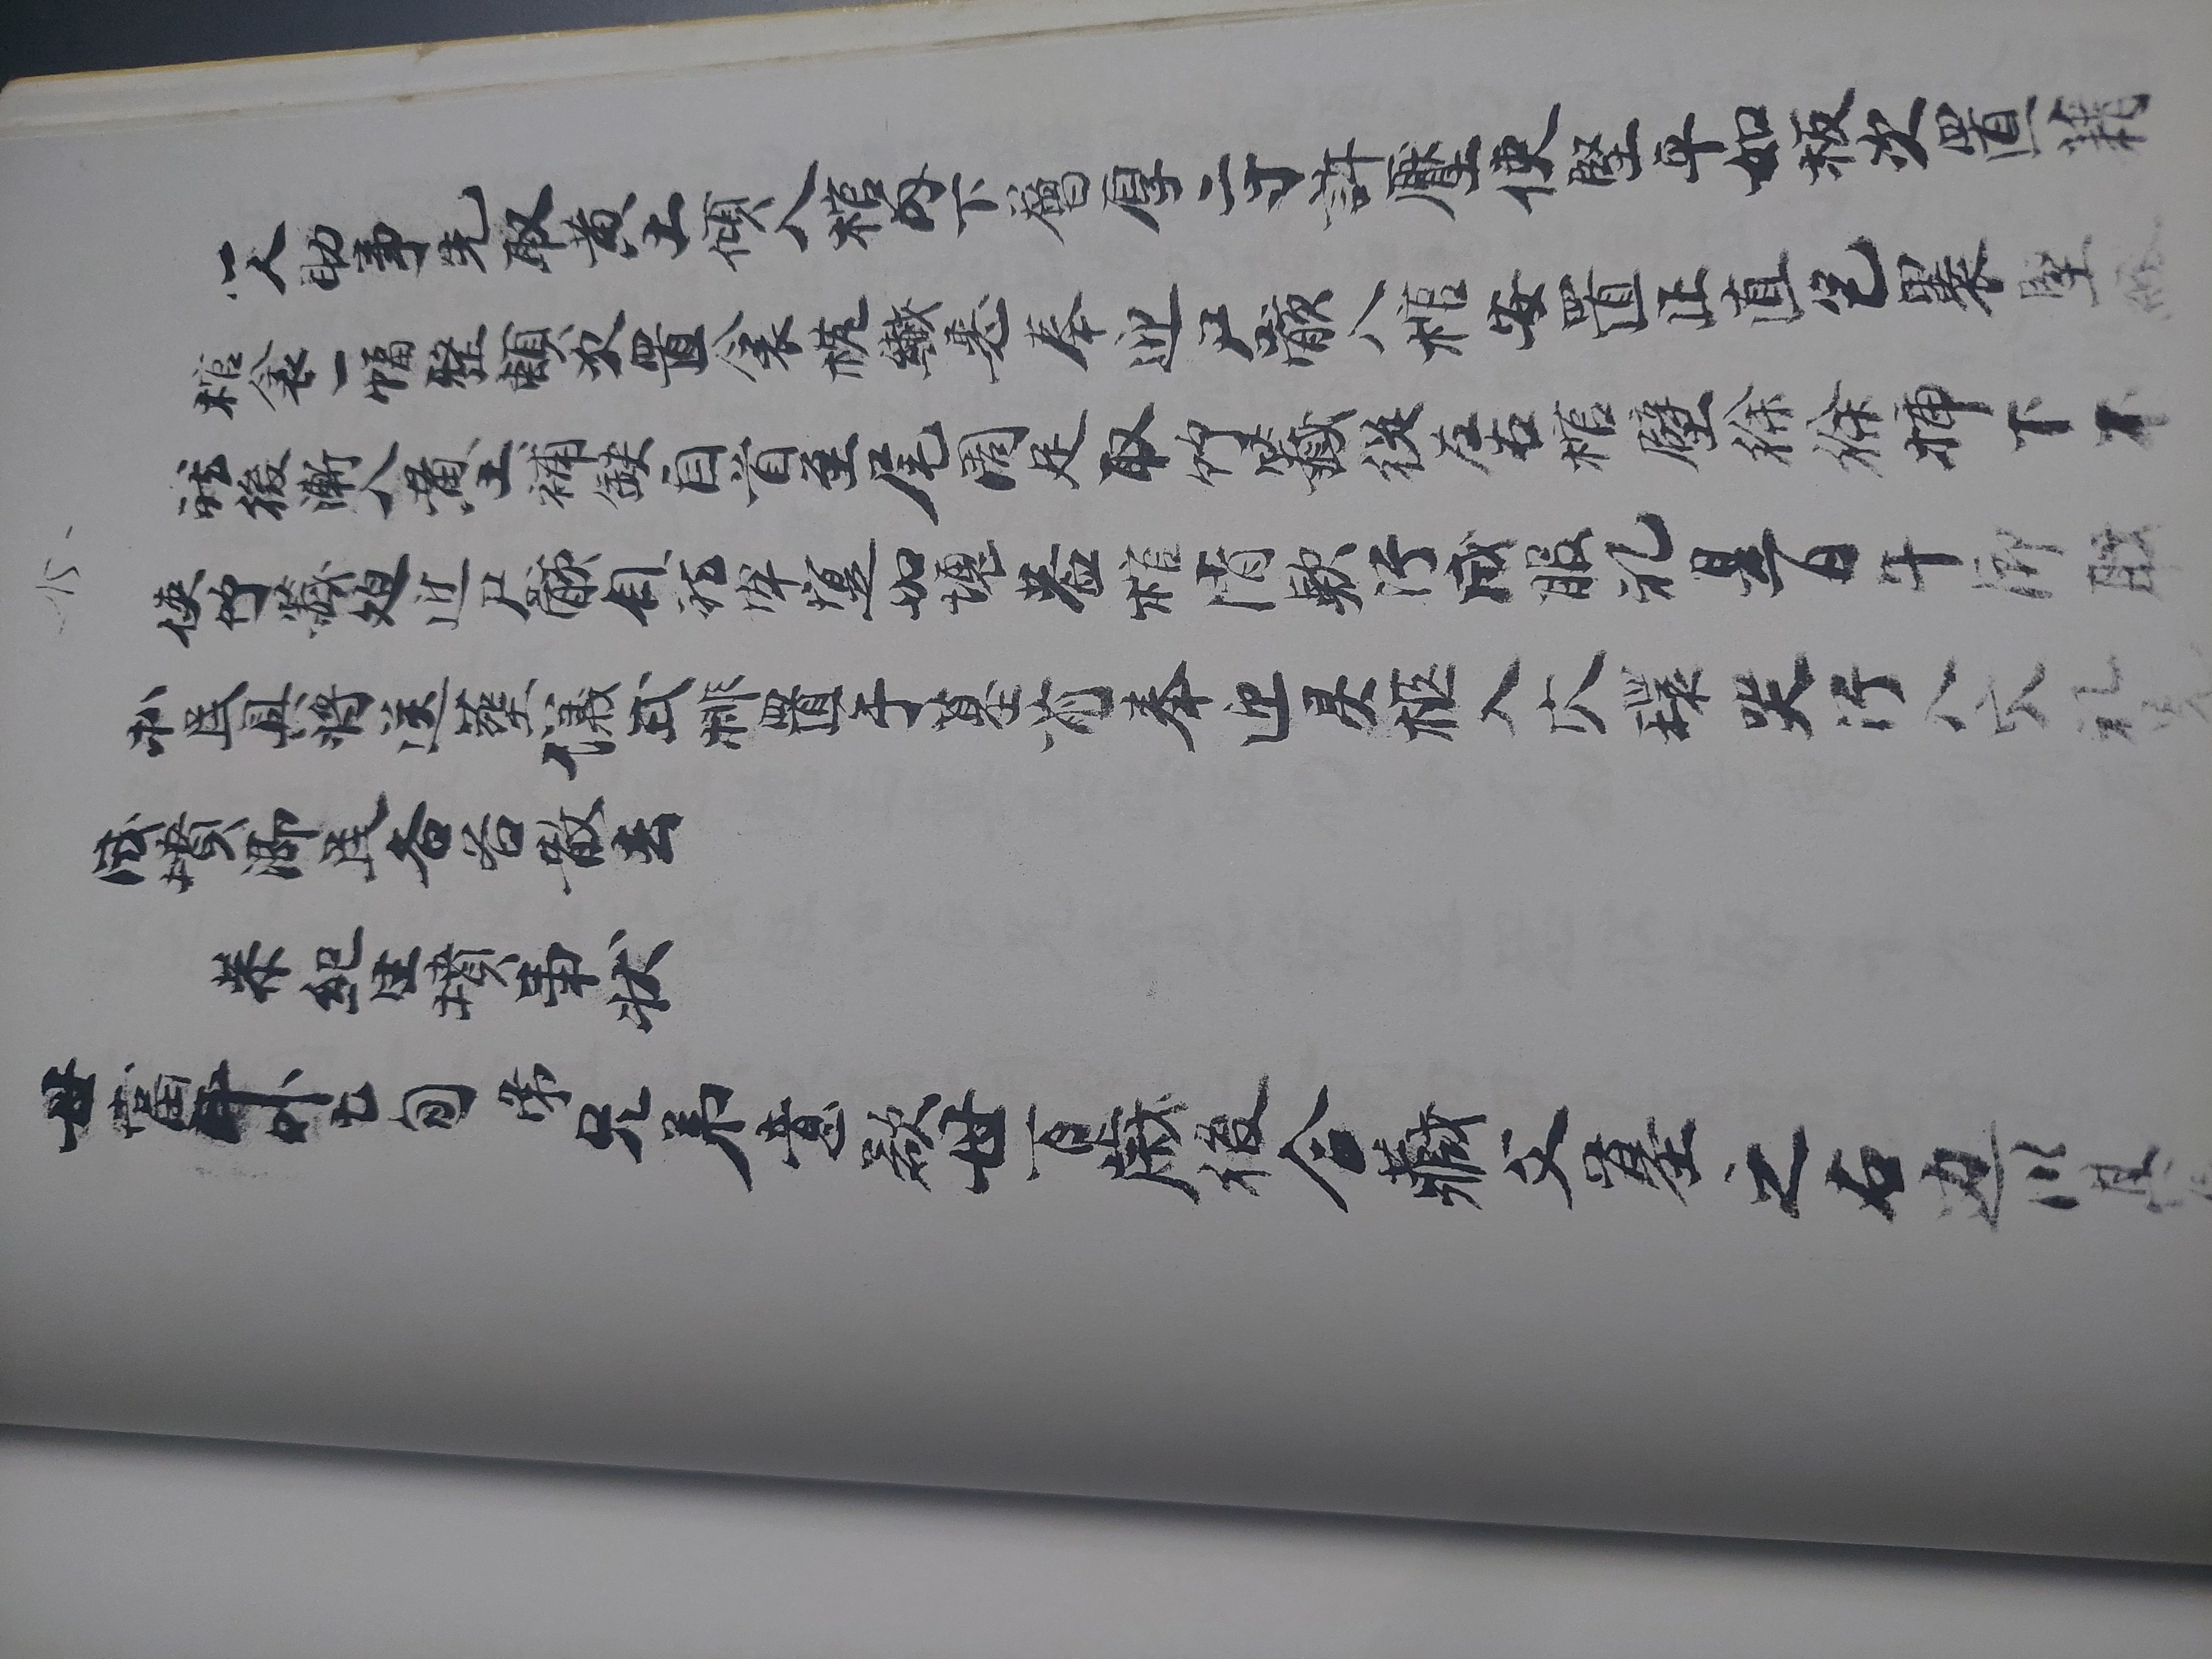 一人助事先取黃土傾入棺内下層厚二寸許壓使堅平如板次置藉
棺衾一幅整頓次置衾枕纖悉奉迎尸骸入棺安置正直包裹堅
後漸入黃土補缺自首至尾周足取竹籤從左右棺壁徐徐揷下不
使竹籤迫近尸骸自 牢寔如塊蓋棺清歛行成服礼是日午鄉
民具將送葬儀式排置于墓前奉迎灵柩入穴環哭行入穴礼
成墳鄉民各各散去
紀生墳事狀
母當年外七旬 兄弟意欲母百歲後合藏父墓之右边以其
15